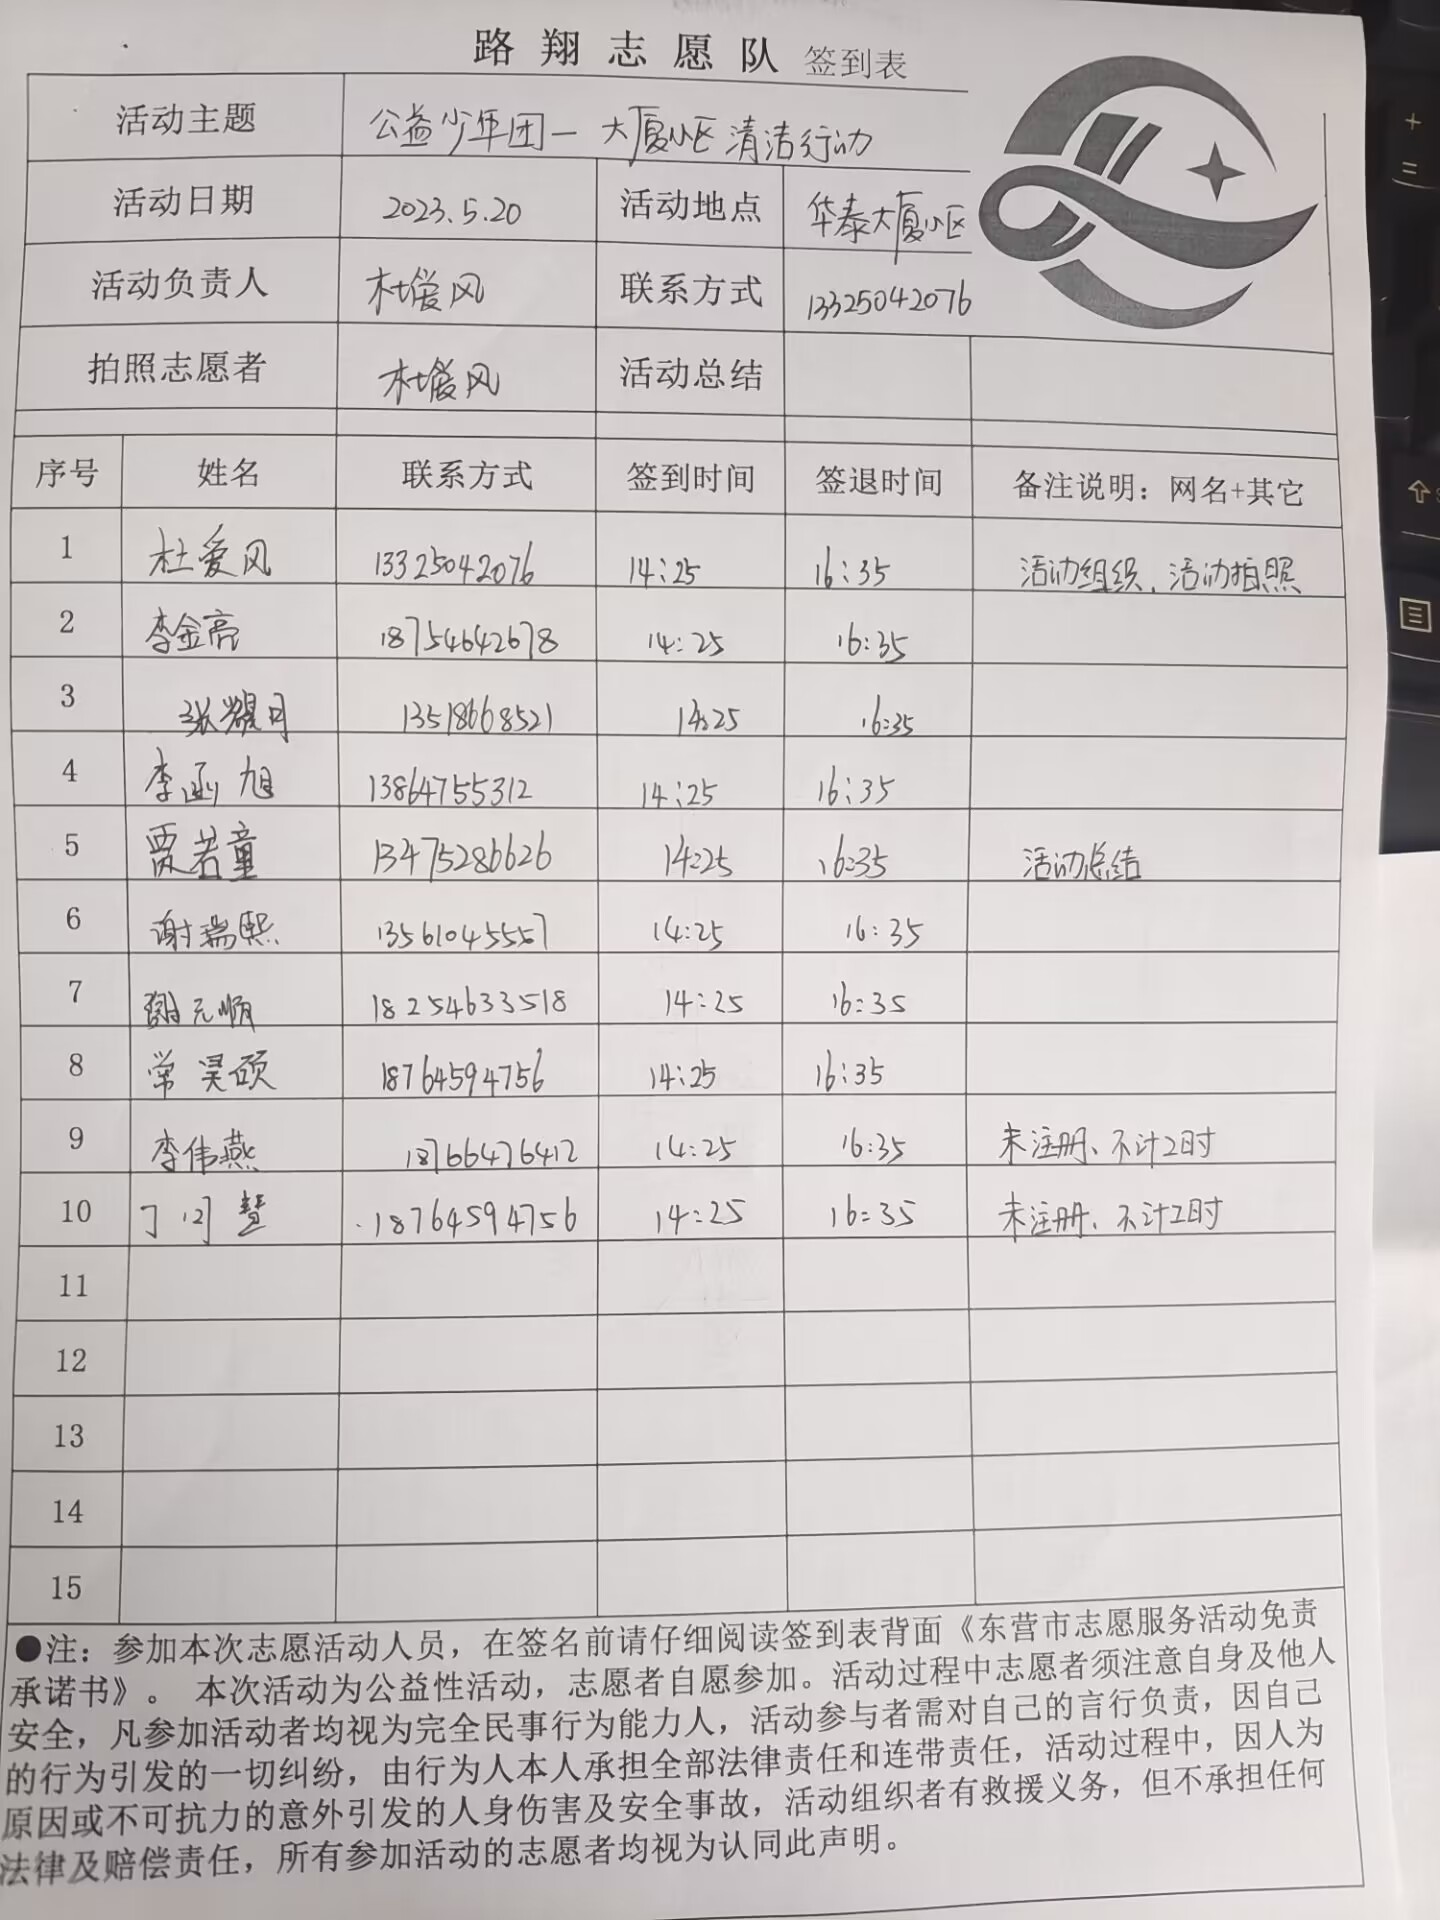 路翔志愿队 签到表
活动主题 公益少年团一 大厦小区清洁行动
活动日期 2023.5.20 活动地点 华泰大厦小区
活动负责人 杜爱风 联系方式 13325042076
拍照志愿者 杜爱风 活动总结
序号 姓名 联系方式 签到时间 签退时间 备注说明：网名+其它
1 杜爱风 13325042076 14:25 16:35 活动组织、活动拍照
2 李金亮 18754642678 14:25 16:35
3 张耀月 13518668521 14:25 16:35
4 李函旭 13864755312 14:25 16:35
5 贾若童 13475286626 14:25 16:35 活动总结
6 谢瑞熙 13561045557 14:25 16:35
7 谢元顺 18254633518 14:25 16:35
8 常昊硕 18764594756 14:25 16:35
9 李伟燕 18766476412 14:25 16:35 未注册、不计工时
10 丁 慧 18764594756 14:25 16:35 未注册、不计工时
11
12
13
14
15
●注：参加本次志愿活动人员，在签名前请仔细阅读签到表背面《东营市志愿服务活动免责
承诺书》。 本次活动为公益性活动，志愿者自愿参加。活动过程中志愿者须注意自身及他人
安全，凡参加活动者均视为完全民事行为能力人，活动参与者需对自己的言行负责，因自己
的行为引发的一切纠纷，由行为人本人承担全部法律责任和连带责任，活动过程中，因人为
原因或不可抗力的意外引发的人身伤害及安全事故，活动组织者有救援义务，但不承担任何
法律及赔偿责任，所有参加活动的志愿者均视为认同此声明。